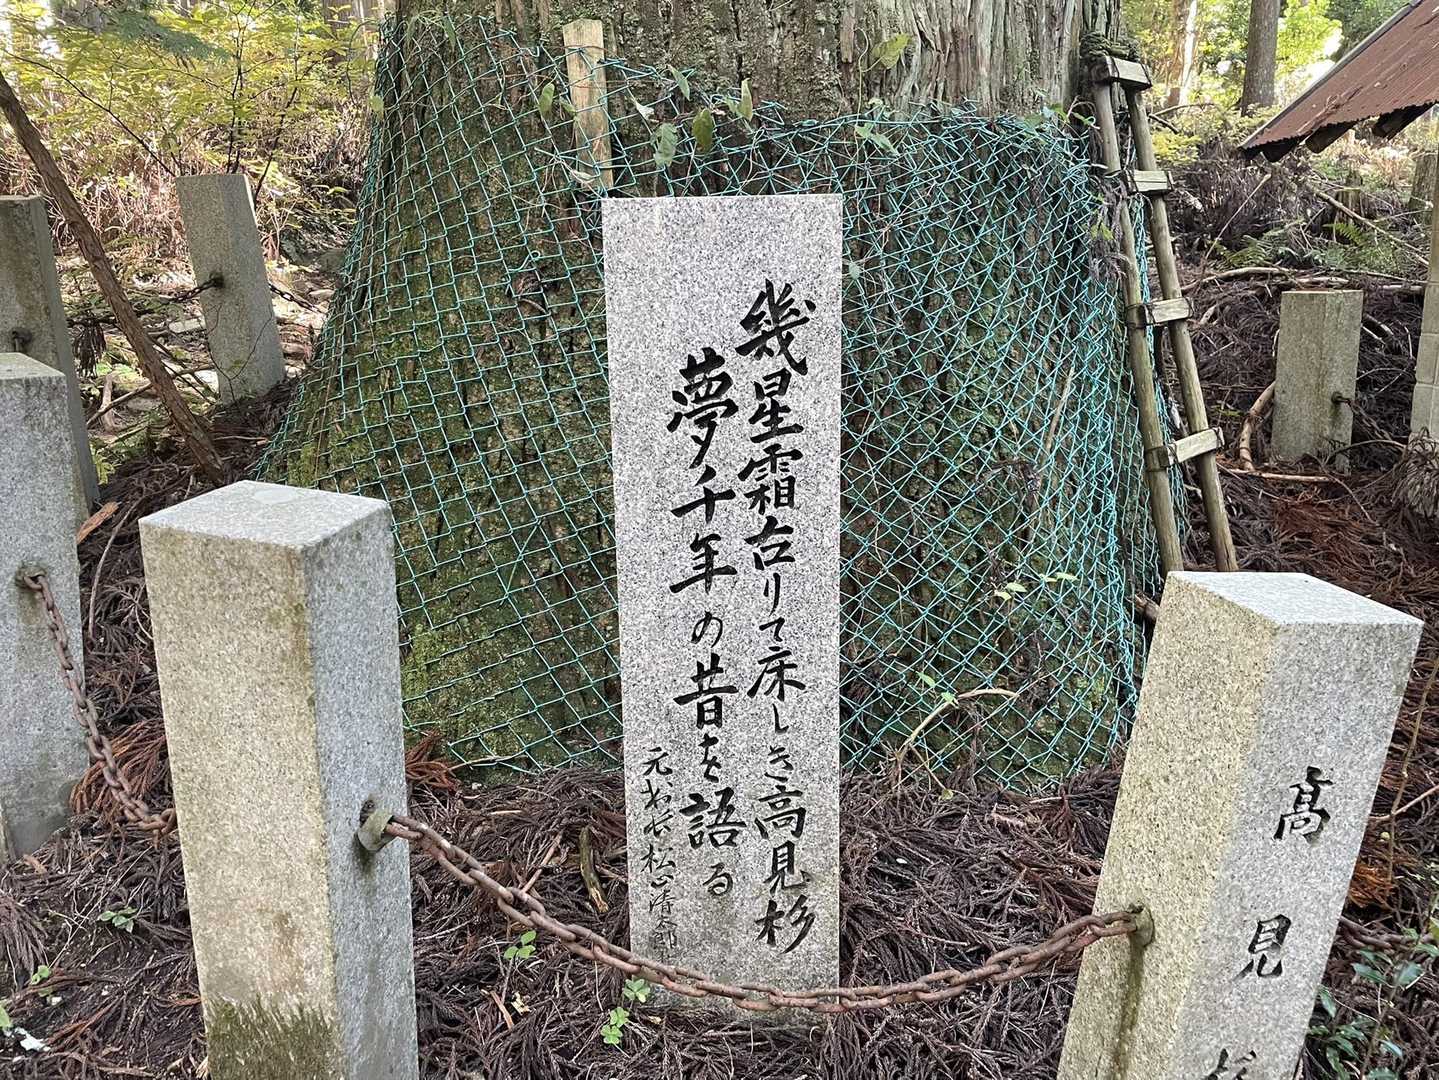 幾星霜古りて床しき高見杉
夢千年の昔を語る
元村長 松山清太郎
高見杉